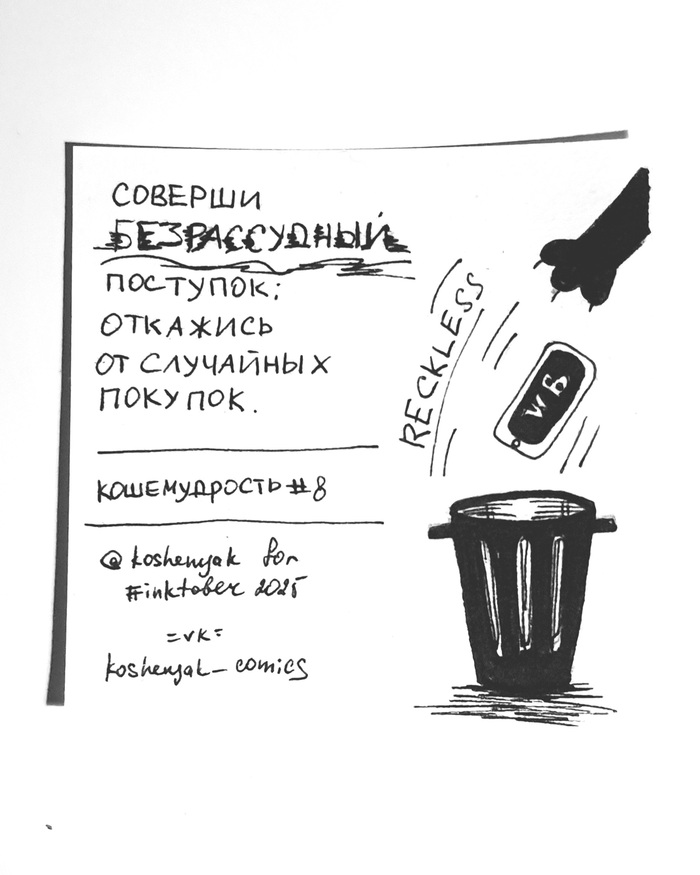 СОВЕРШИ
БЕЗРАССУДНЫЙ
ПОСТУПОК:
ОТКАЖИСЬ
ОТ СЛУЧАЙНЫХ
ПОКУПОК.
КОШЕМУДРОСТЬ #8
@koshenyak for
#inktober 2025
=vk=
koshenyak_comics
RECKLESS
WB